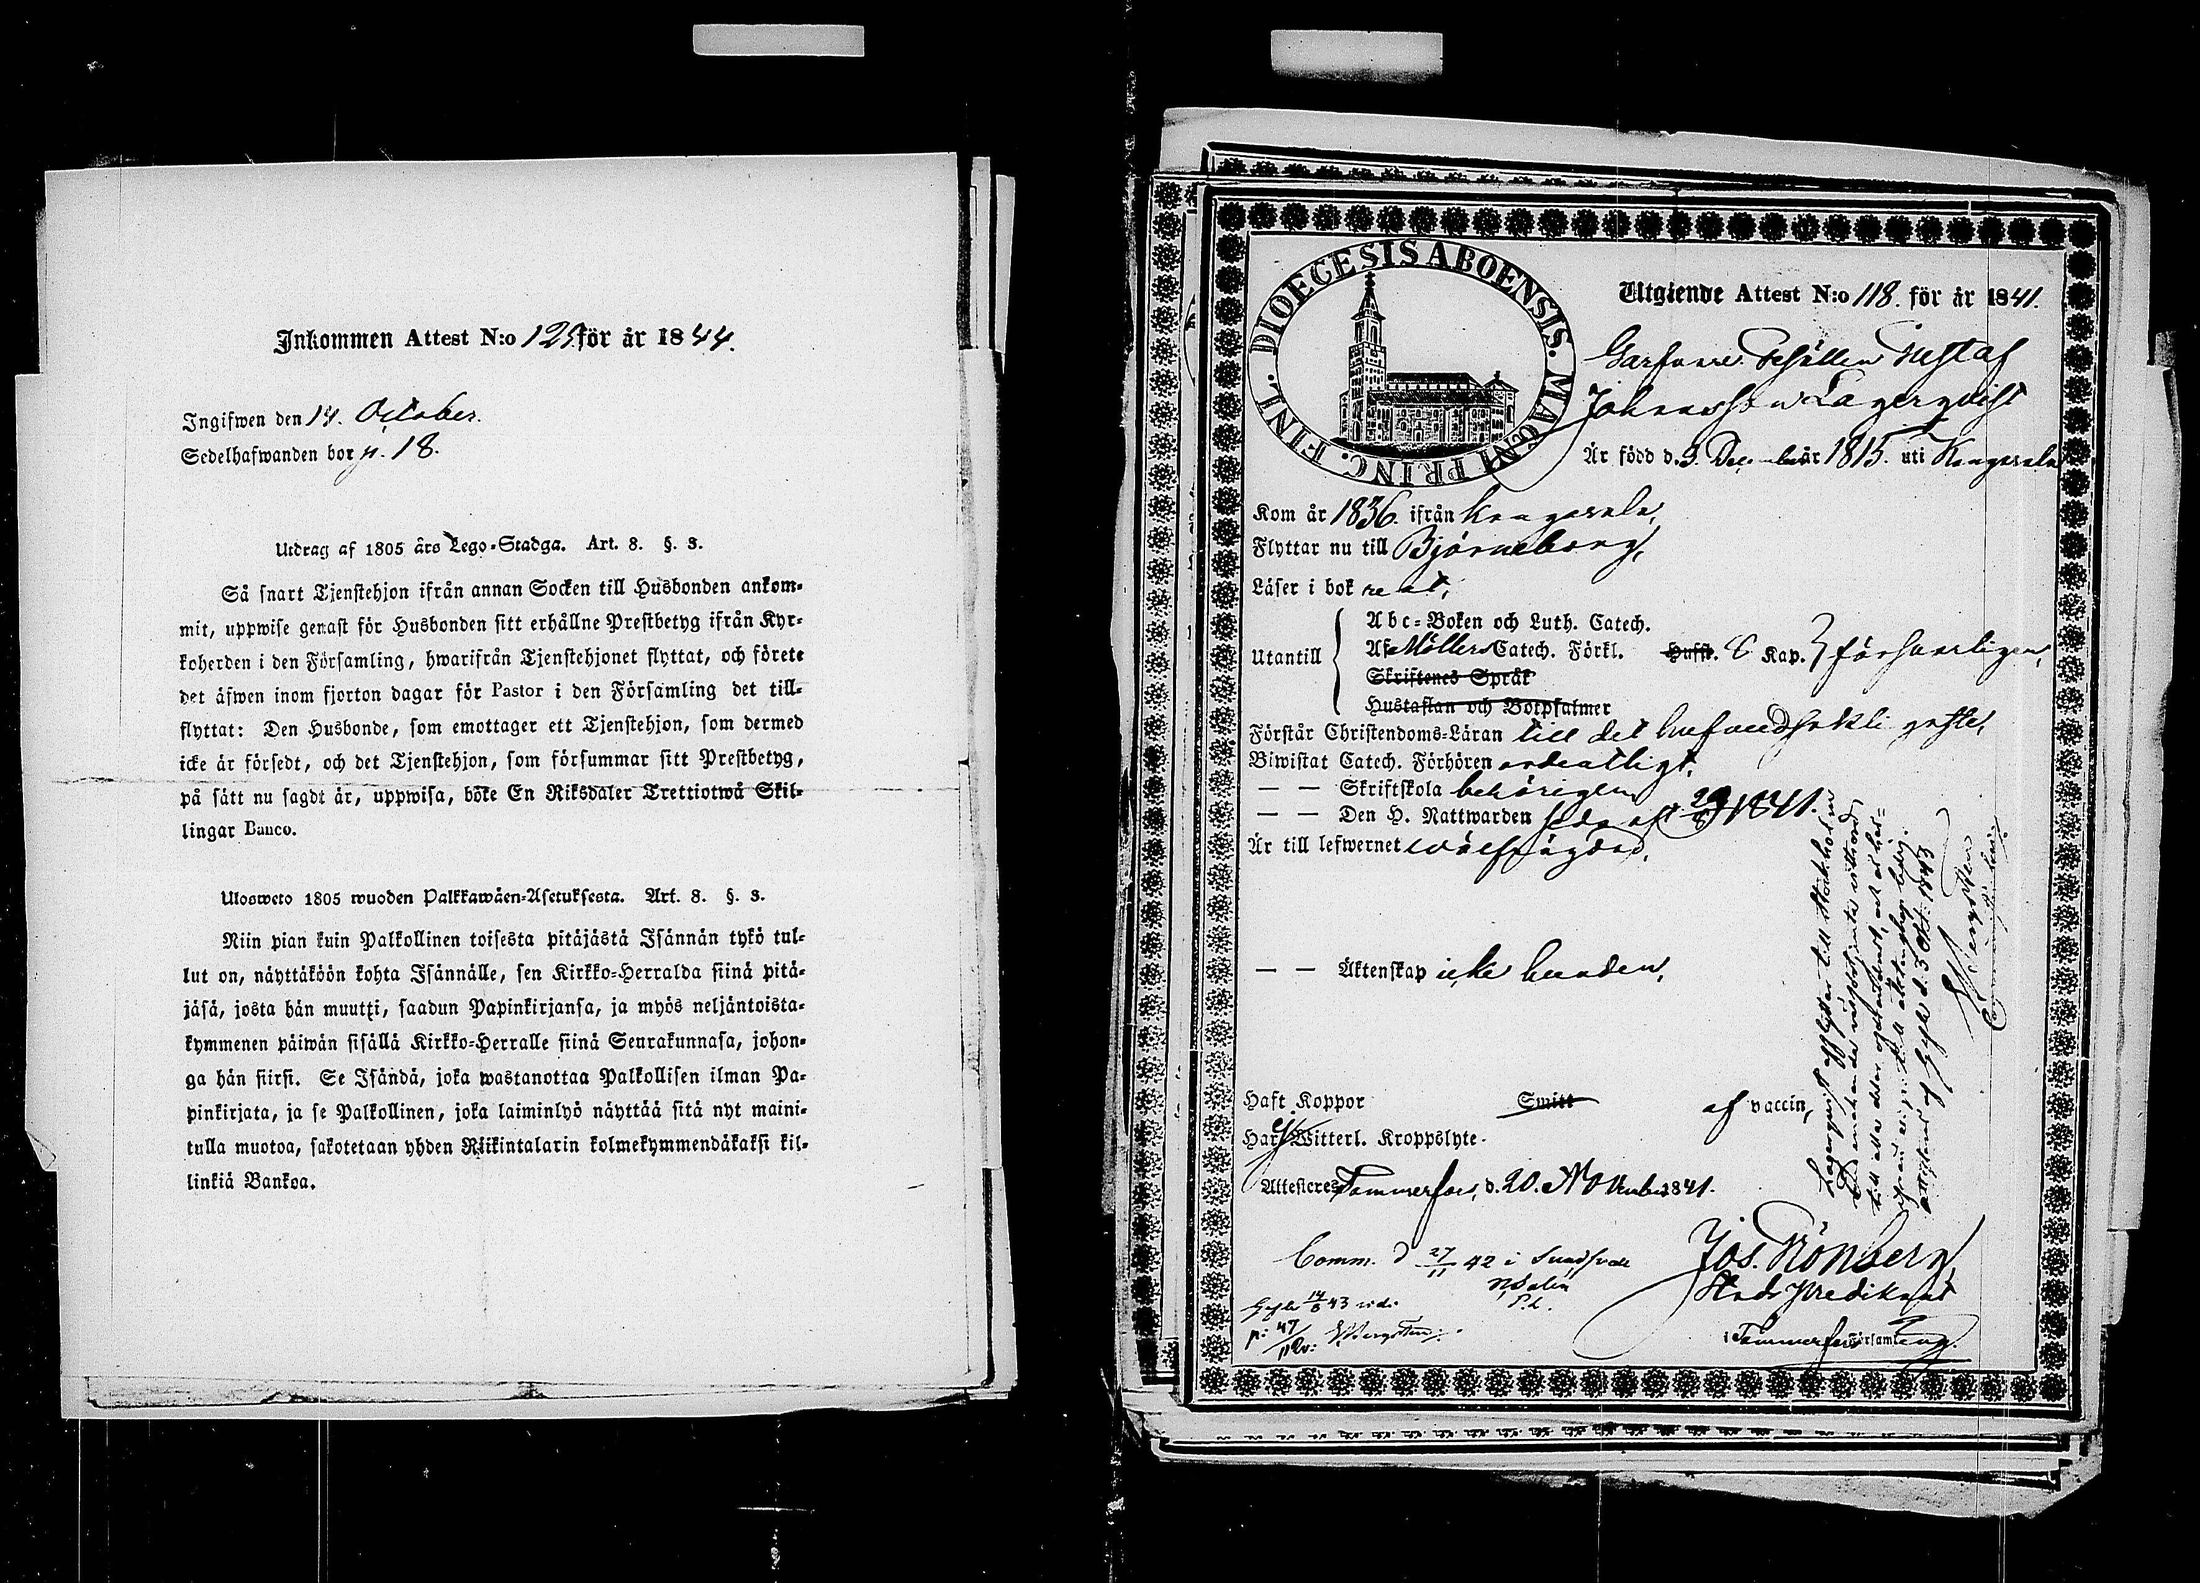 Inkommen Attest N:o 125 för år 1844.
Ingifwen den 14. October.
Sedelhafwanden bor p. 18.
Utdrag af 1805 års Lego-Stadga. Art. 8. §. 3.
Så snart Tjenstehjon ifrån annan Socken till Husbonden ankom-
mit, uppwise genast för Husbonden sitt erhållne Prestbetyg ifrån Kyr-
koherden i den Församling, hwarifrån Tjenstehjonet flyttat, och förete
det äfwen inom fjorton dagar för Pastor i den Församling det till-
flyttat: Den Husbonde, som emottager ett Tjenstehjon, som dermed
icke är försedt, och det Tjenstehjon, som försummar sitt Prestbetyg,
på sätt nu sagdt är, uppwisa, böte En Riksdaler Trettiotwå Skil-
lingar Banco.
Ulosweto 1805 wuoden Palkkawäen-Asetuksesta. Art. 8. §. 3.
Niin pian kuin Palkollinen toisesta pitäjästä Isännän tykö tul-
lut on, näyttäköön kohta Isännälle, sen Kirkko-Herralda siinä pitä-
jäsä, josta hän muutti, saadun Papinkirjansa, ja myös neljäntoista-
kymmenen päiwän sisällä Kirkko-Herralle siinä Seurakunnasa, johon-
ga hän siirsi. Se Isändä, joka wastanottaa Palkollisen ilman Pa-
pinkirjata, ja se Palkollinen, joka laiminlyö näyttää sitä nyt maini-
tulla muotoa, sakotetaan yhden Riikintalarin kolmekymmendäkaksi kil-
linkiä Bankoa.
DIOECESIS ABOENSIS. MAGNI PRINC. FINL.
Utgående Attest N:o 118. för år 1841.
Garfvare Gesällen Gustaf
Johansson Lagerqvist
Är född d. 3. December år 1815. uti Kangasala
Kom år 1836. ifrån Kangasala,
Flyttar nu till Björneborg,
Läser i bok rent,
Utantill
Abc-Boken och Luth. Catech.
Af Möllers Catech. Förkl. Huffst. C Kap. försvarligen,
Skriftenes Språk
Hustaflan och Botpsalmer
Förstår Christendoms-Läran till det hufvudsakligaste,
Biwistat Catech. Förhören ordentligt,
— — Skriftskola behörigen
— — Den H. Nattwarden 1841.
Är till lefwernet wälfrägdad,
— — Äktenskap icke bunden,
Haft Koppor Smitt af vaccin,
Har ej Witterl. Kroppslyte.
Attesteres Tammerfors, d. 20. November 1841.
Jos. Grönberg
Stads Predikant
i Tammerfors församling.
Comm. d 27/11 42 i Sundsvall
Gefle 14/6 43
p: 47
Bergsten
Lagerquist afflyttar till Stockholm
attesterar af Gefle d. 3 Oct. 1843
Bergsten